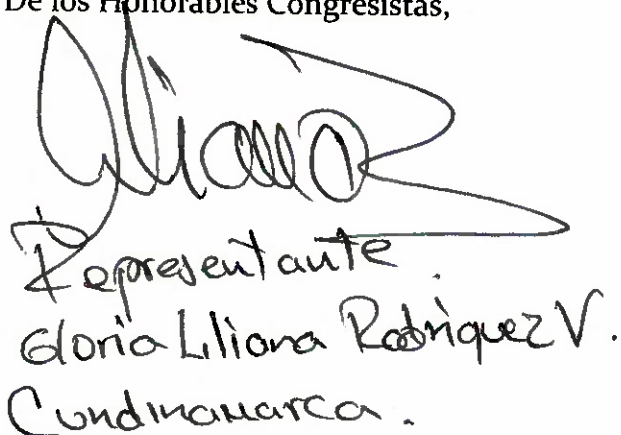 De los Honorables Congresistas,
Liliana R
Representante
Gloria Liliana Rodriguez V.
Cundinamarca.